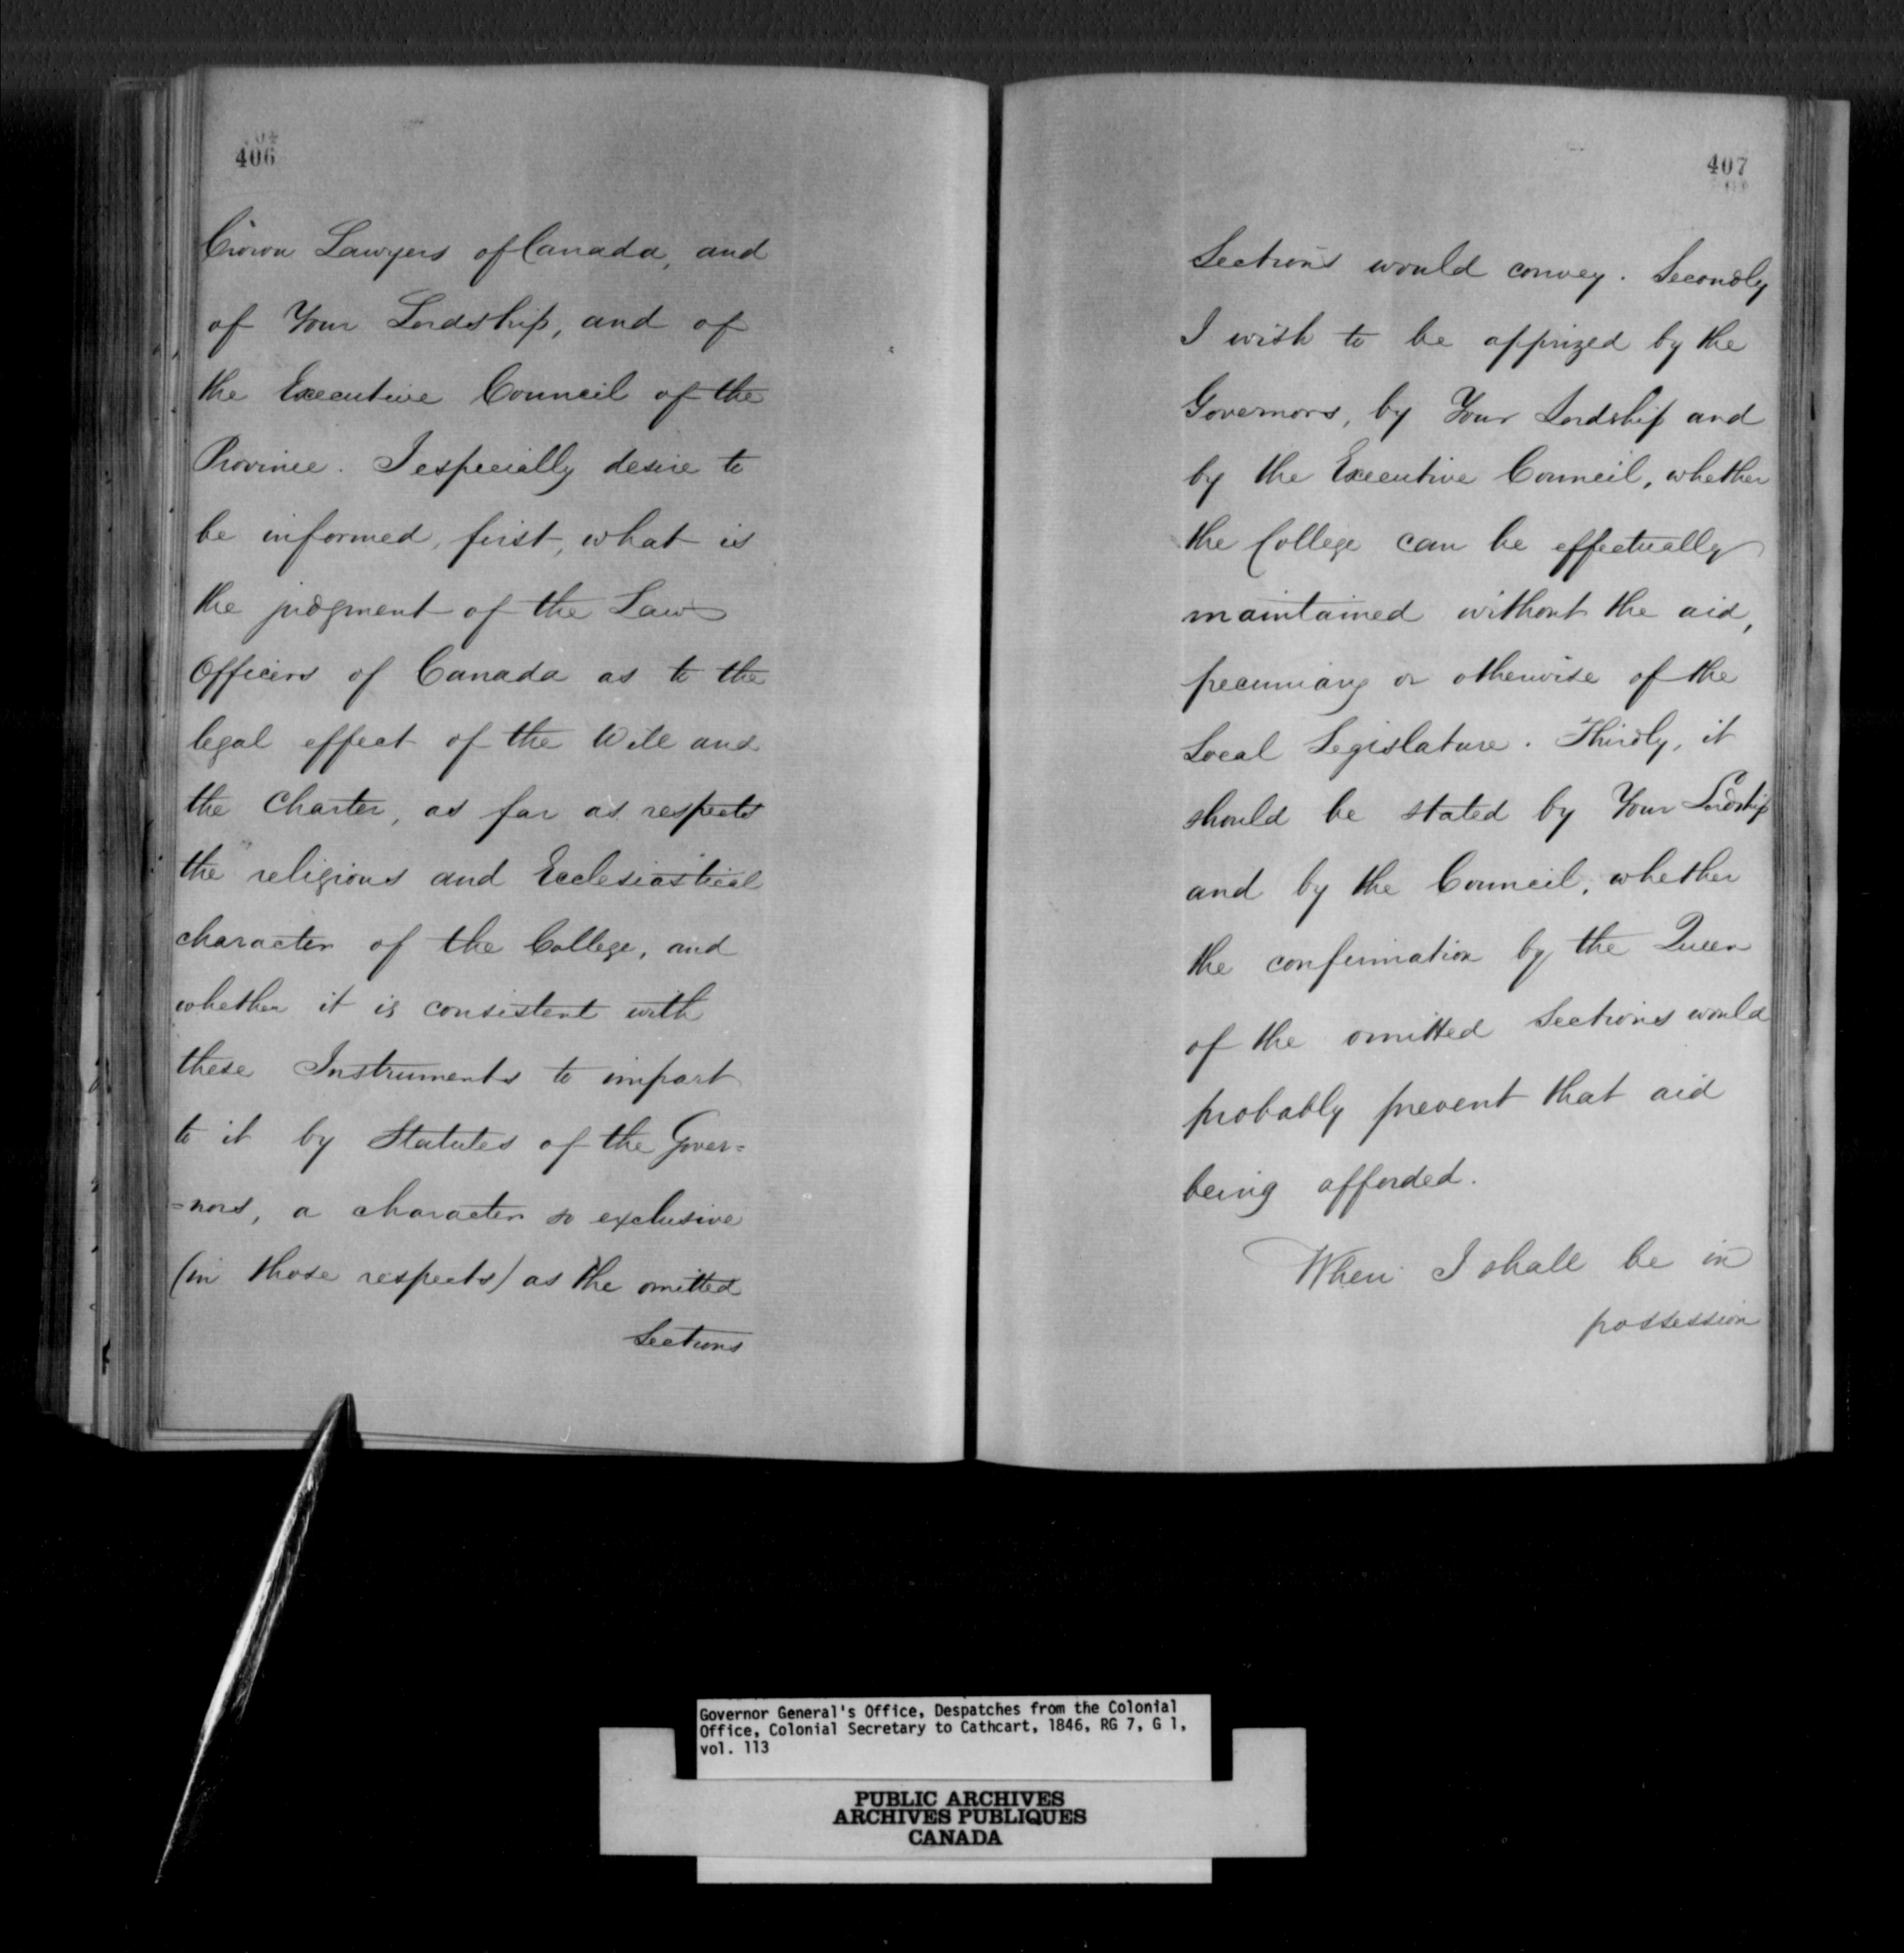 406
Crown Lawyers of Canada, and
of Your Lordship, and of
the Executive Council of the
Province. I especially desire to
be informed, first, what is
the judgment of the Law
Officers of Canada as to the
legal effect of the Will and
the Charter, as far as respects
the religious and Ecclesiastical
character of the College, and
whether it is consistent with
these Instruments to impart
to it by Statutes of the Gover=
=nors, a character so exclusive
(in those respects) as the omitted
Sections
407
Sections would convey. Secondly
I wish to be apprized by the
Governors, by Your Lordship and
by the Executive Council, whether
the College can be effectually
maintained without the aid,
pecuniary or otherwise of the
Local Legislature. Thirdly, it
should be stated by Your Lordship
and by the Council, whether
the confirmation by the Queen
of the omitted Sections would
probably prevent that aid
being afforded.
When I shall be in
possession
Governor General's Office, Despatches from the Colonial
Office, Colonial Secretary to Cathcart, 1846, RG 7, G 1,
vol. 113
PUBLIC ARCHIVES
ARCHIVES PUBLIQUES
CANADA